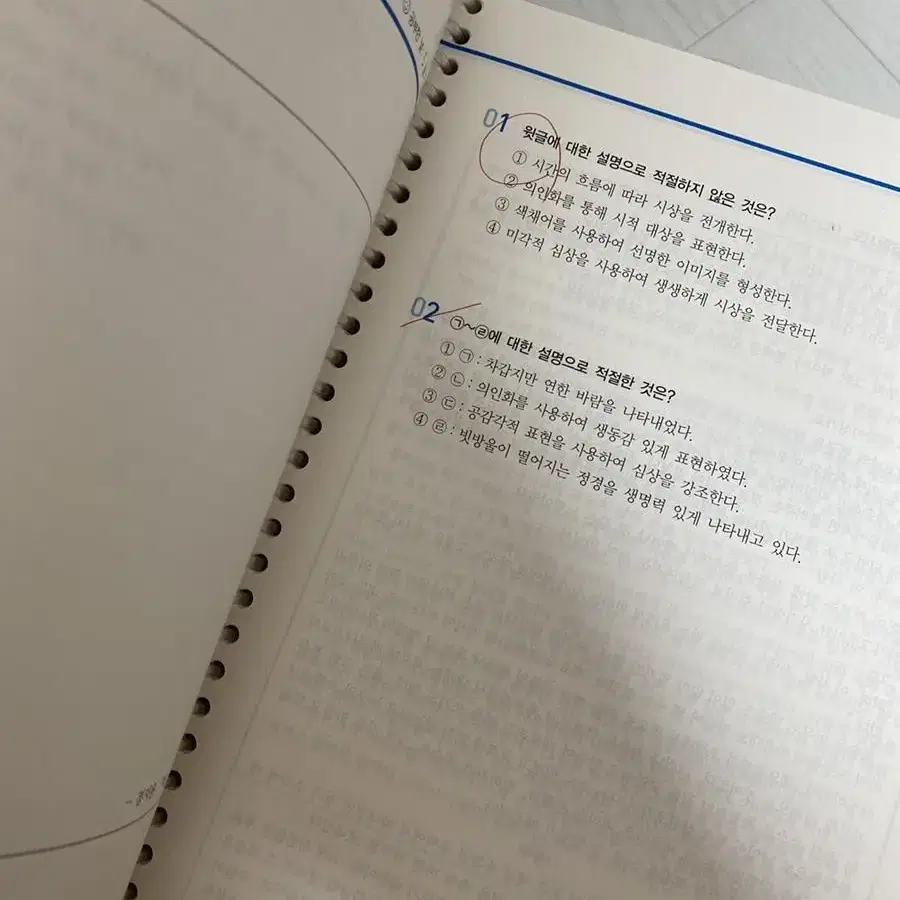 01 윗글에 대한 설명으로 적절하지 않은 것은?
① 시간의 흐름에 따라 시상을 전개한다.
② 의인화를 통해 시적 대상을 표현한다.
③ 색채어를 사용하여 선명한 이미지를 형성한다.
④ 미각적 심상을 사용하여 생생하게 시상을 전달한다.
02 ㉠~㉣에 대한 설명으로 적절한 것은?
① ㉠ : 차갑지만 연한 바람을 나타내었다.
② ㉡ : 의인화를 사용하여 생동감 있게 표현하였다.
③ ㉢ : 공감각적 표현을 사용하여 심상을 강조한다.
④ ㉣ : 빗방울이 떨어지는 정경을 생명력 있게 나타내고 있다.